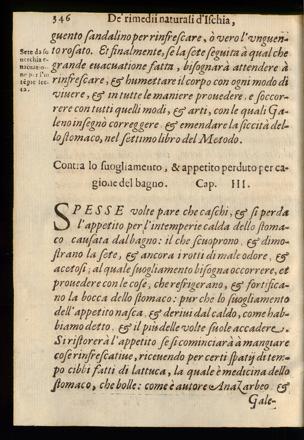 346 De' rimedii naturali d'Ischia,
guento sandalino per rinfrescare, ò vero l'vnguen-
to rosato. Et finalmente, se la sete seguita à qual che
grande euacuatione fatta, bisognarà attendere à
rinfrescare, & humettare il corpo con ogni modo di
viuere, & in tutte le maniere prouedere, e soccor-
rere con tutti quelli modi, & arti, con le quali Ga-
leno insegnò correggere & emendare la siccità del-
lo stomaco, nel settimo libro del Metodo.
Sete da so
uerchia e-
uacuatio-
Contra lo suogliamento, & appetito perduto per ca-
gione del bagno. Cap. III.
SPESSE volte pare che caschi, & si perda
l'appetito per l'intemperie calda dello stoma-
co causata dal bagno: il che scuoprono, & dimo-
strano la sete, & ancora i rotti di male odore, &
acetosi; al quale suogliamento bisogna occorrere, et
prouedere con le cose, che refrigerano, & fortifica-
no la bocca dello stomaco: pur che lo suogliamento
dell'appetito nasca, & deriui dal caldo, come hab-
biamo detto, & il più delle volte suole accadere.
Si ristorerà l'appetito se si cominciarà à mangiare
cose rinfrescatiue, riceuendo per certi spatij di tem-
po cibbi fatti di lattuca, la quale è medicina dello
stomaco, che bolle: come è autore AnaZarbeo &
Gale-